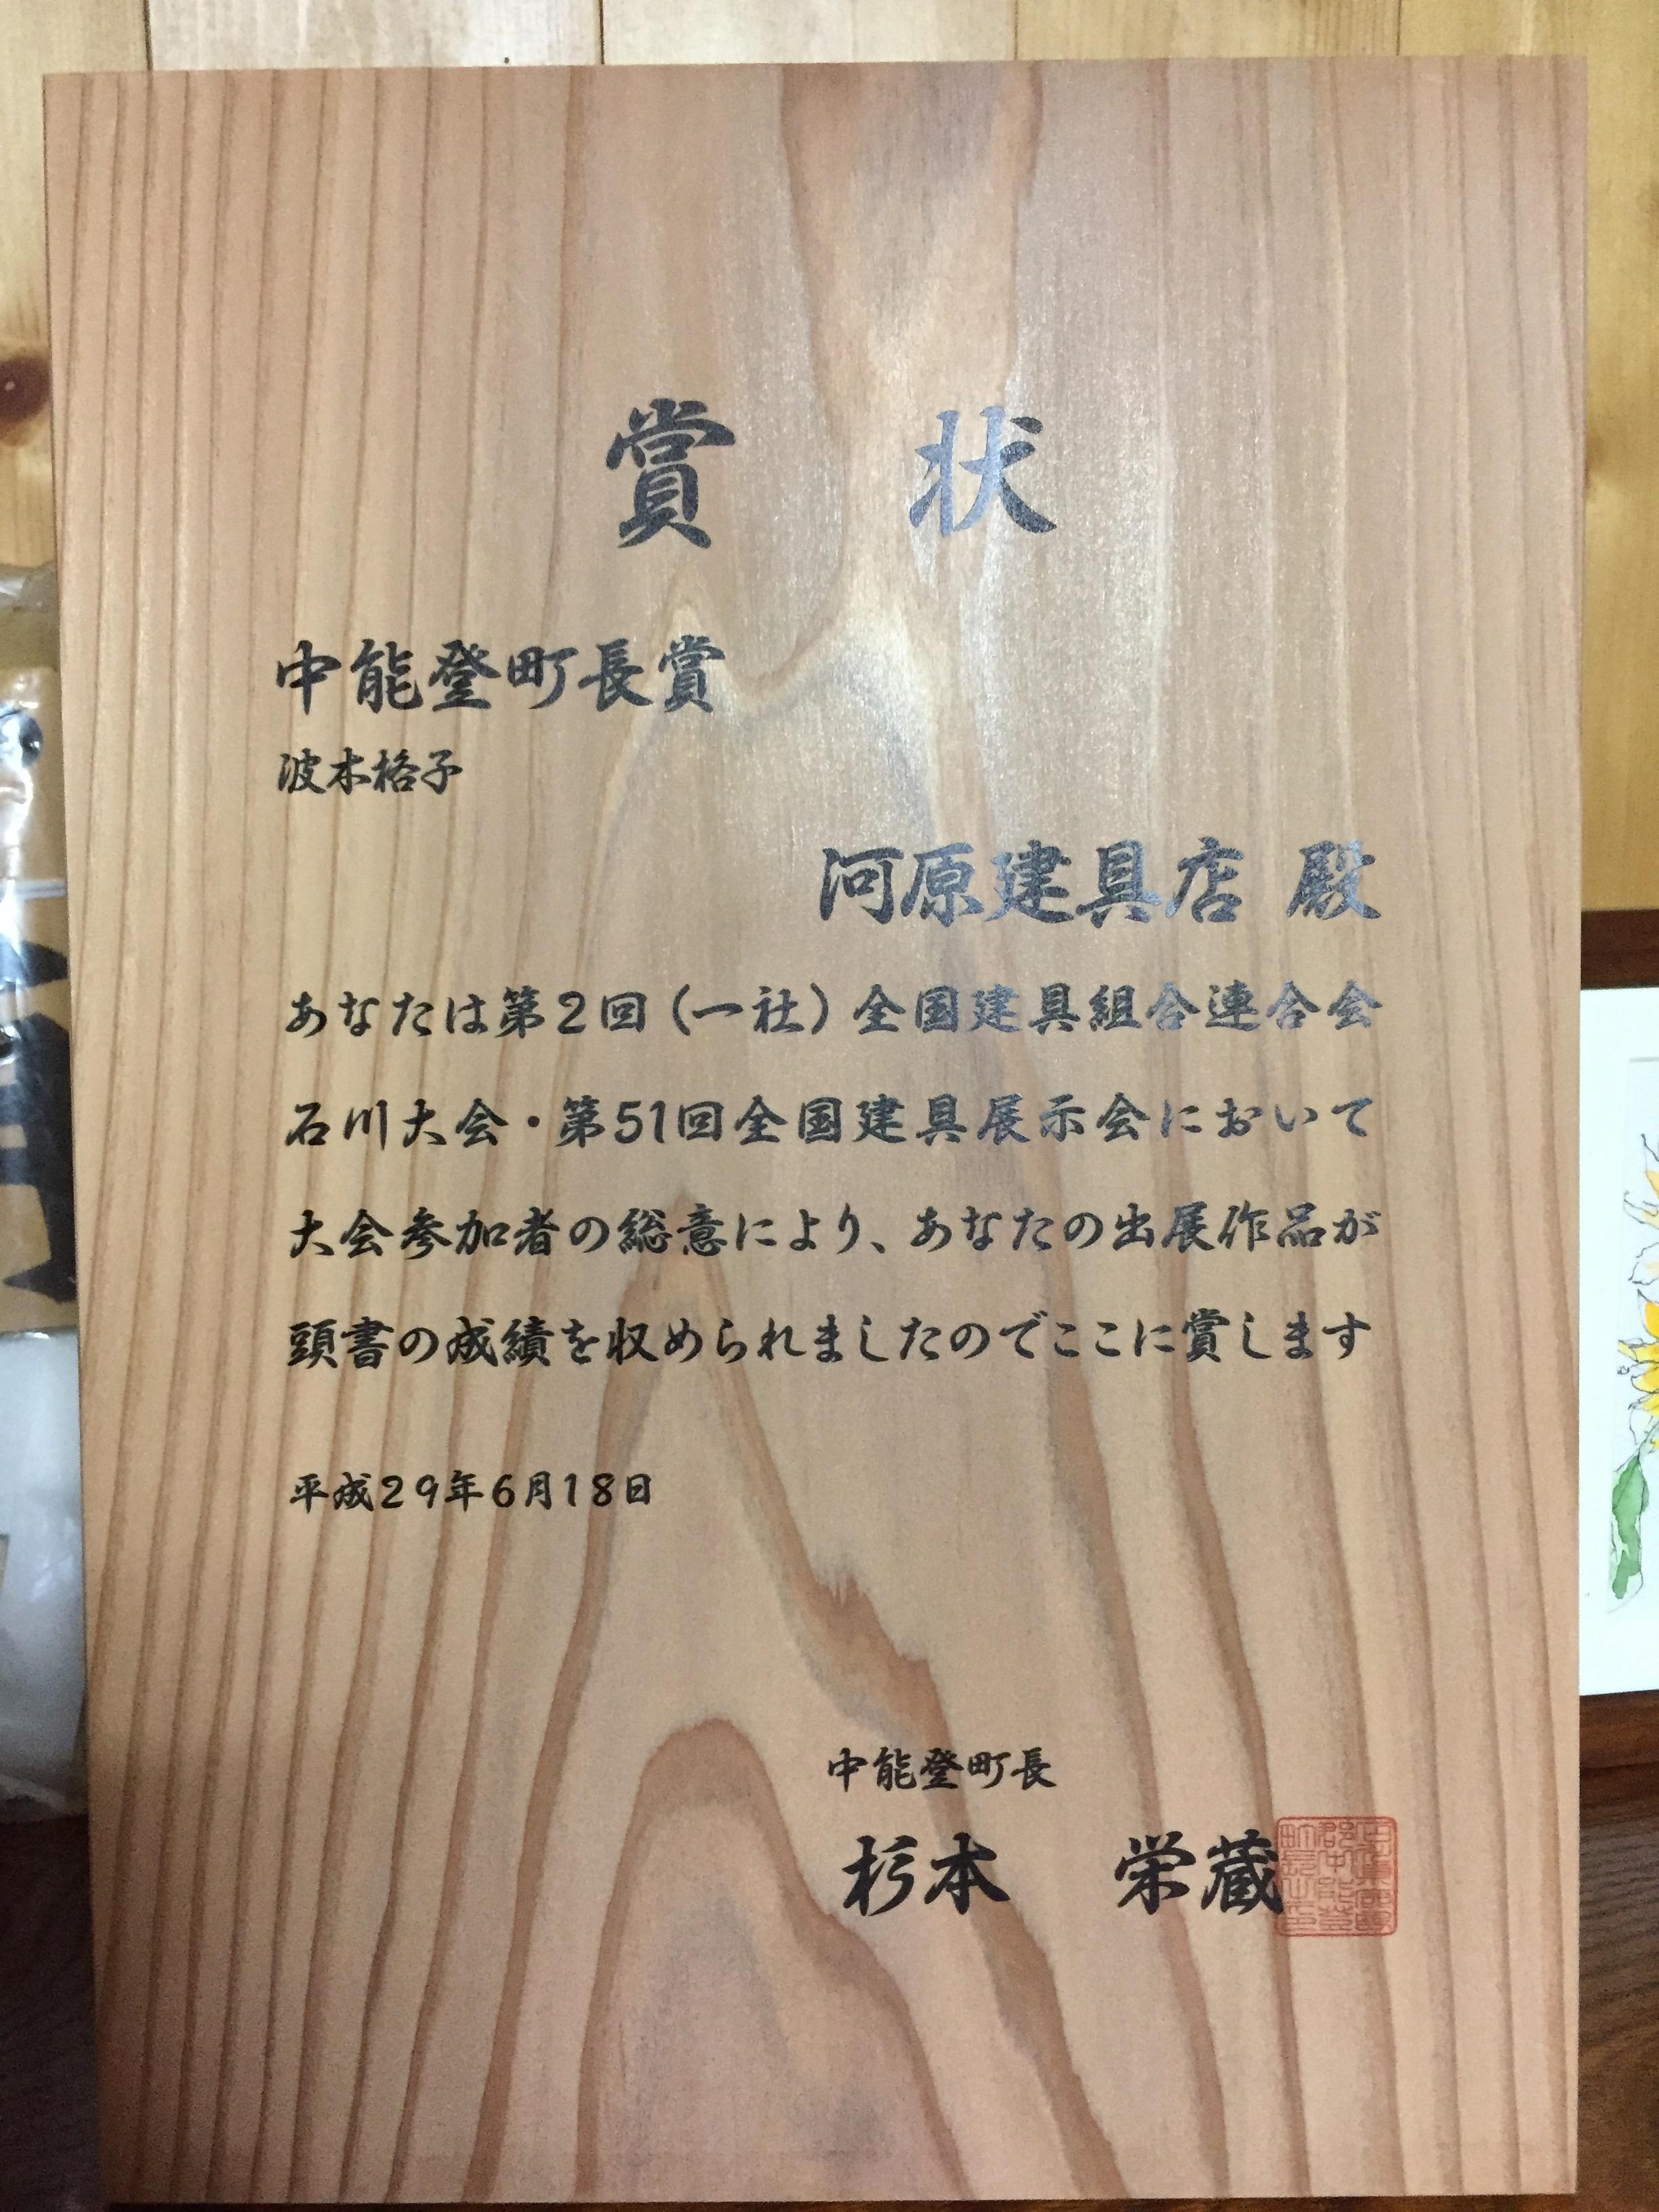 賞 状
中能登町長賞
波木格子
河原建具店 殿
あなたは第2回(一社)全国建具組合連合会
石川大会・第51回全国建具展示会において
大会参加者の総意により、あなたの出展作品が
頭書の成績を収められましたのでここに賞します
平成29年6月18日
中能登町長
杉本 栄蔵